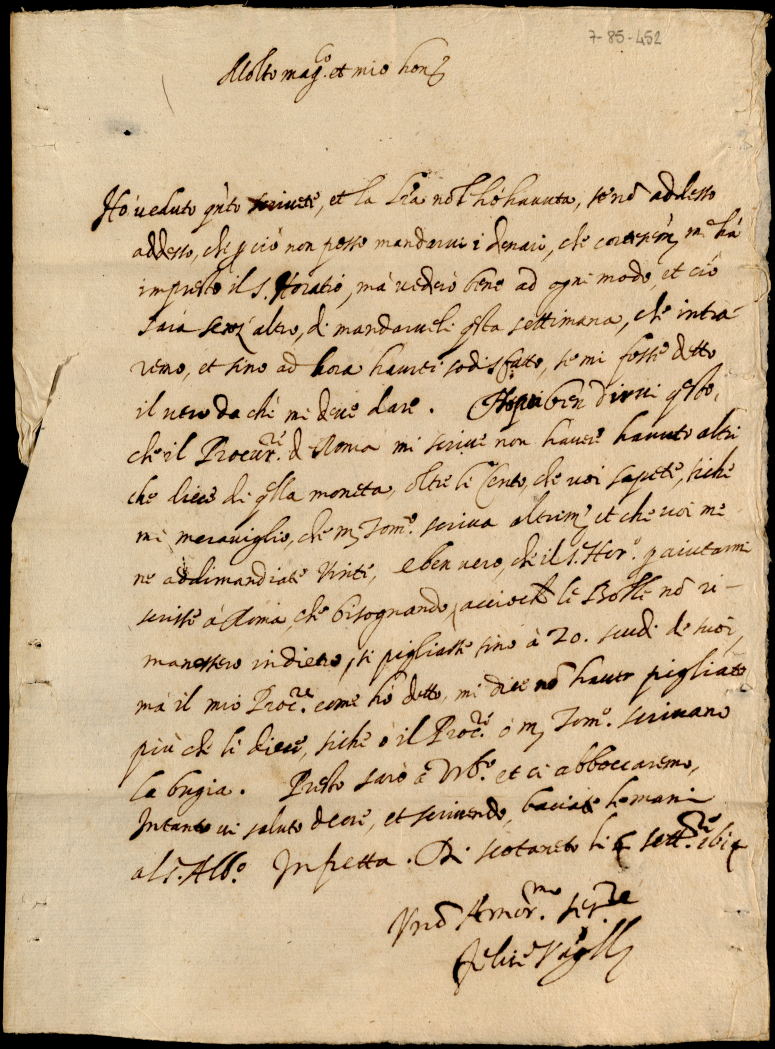 7-85-452
Molto mag.co et mio hon.
Hò veduto q.nto scrivete, et la l'ra nõ l'hò havuta, se nõ addesso
addesso, che p ciò non posso mandarvi i denari, che m'hà
impresto il S. Horatio, mà vederò bene ad ogni modo, et ciò
sarà senz'altro, di mandarveli q.sta settimana, che intra-
remo, et sino ad hora haverei sodisfatto, se mi fosse detto
il vero da chi mi deve dare. ben dirvi q.sto,
che il Procur.re di Roma mi scrive non havere havuto altri
che dieci di q.lla moneta, oltre li Cento, che voi sapete, siche
mi meraviglio, che m. Tom.o scriva altrim. et che voi me
ne addimandiate vinti, e ben vero, che il S. Hor.o p aiutarmi
scrisse à Roma, che bisognando, acciochè le Bolle nõ ri-
manessero indietro, si pigliasse sino à 20. scudi de suoi,
mà il mio Proc.re come hò detto, mi dice nõ haver pigliato
più che li dieci, siche ò il Proc.re ò m. Tom.o scrivano
la bugia. Presto sarò à Urb.o et ci abboccaremo,
Intanto vi saluto di core, et scrivendo, baciate le mani
al S. Alb.o In fretta. Di li sett.re
Vr̃o Amor.mo ser.re
Felice